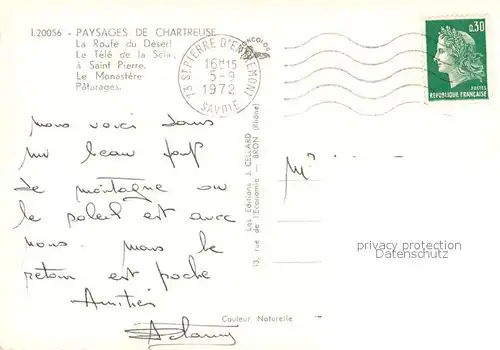 I.20056 - PAYSAGES DE CHARTREUSE
La Route du Désert
Le Télé de la Scia,
à Saint Pierre.
Le Monastère
Pâturages.
73 ST PIERRE D'ENTREMONT
16H15
5-9
1972
SAVOIE
0,30
POSTES
REPUBLIQUE FRANÇAISE
nous voici dans
un beau
de montagne ou
le soleil est avec
nous. mais le
retour est proche
Amitiés
Les Editions J. CELLARD
13, rue de l'Economie - BRON (Rhône)
Couleur Naturelle
Mr
privacy protection
Datenschutz